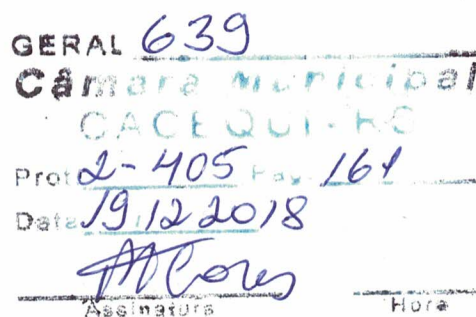 GERAL 639
Câmara Municipal
CACEQUI - RS
Prot. 2-405 Pag. 161
Data 19 12 2018
Assinatura Hora